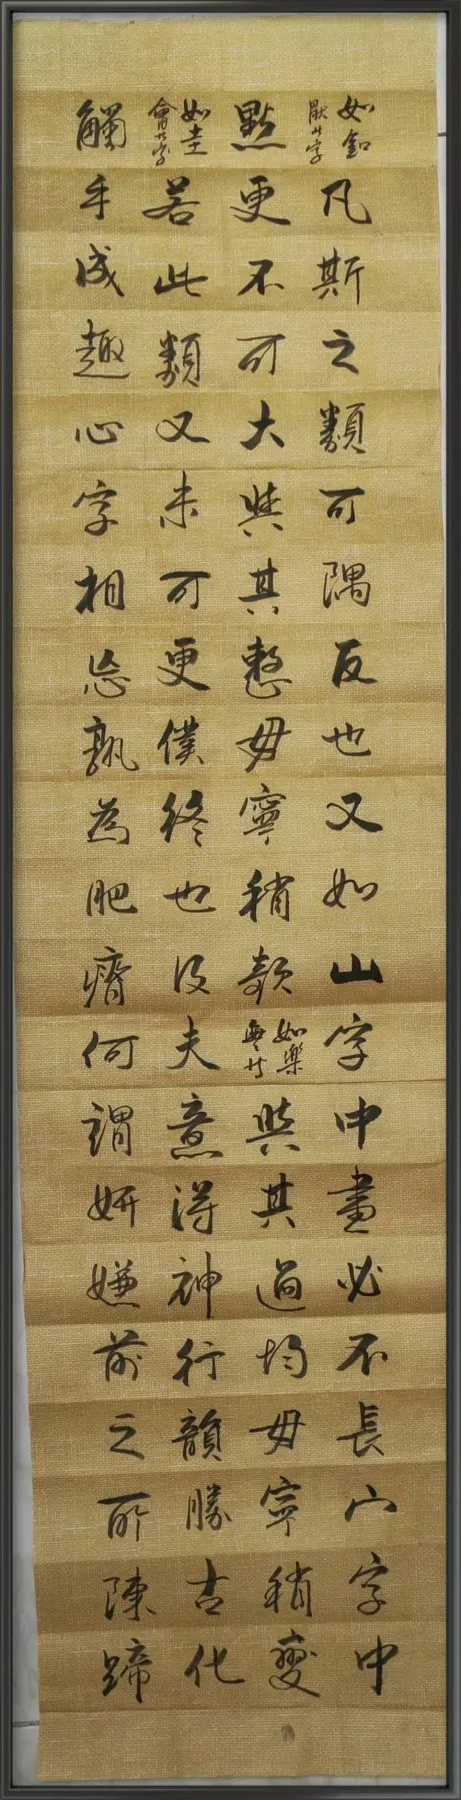 如釦厭等字凡斯之類可隅反也又如山字中畫必不長宀字中
點更不可大與其整毋寧稍欹如樂無等與其過均毋寧稍變
如圭會等字若此類又未可更僕終也及夫意得神行韻勝古化
觸手成趣心字相忘孰為肥瘠何謂妍嫌前之所陳蹄